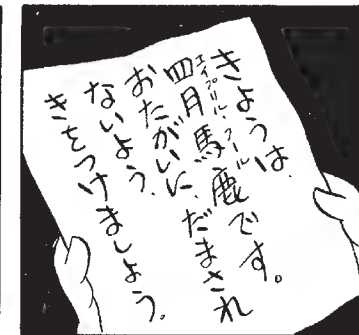 きょうは、
四月馬鹿です。
エイプリル・フール
おたがいに、だまされ
ないよう、
きをつけましょう。